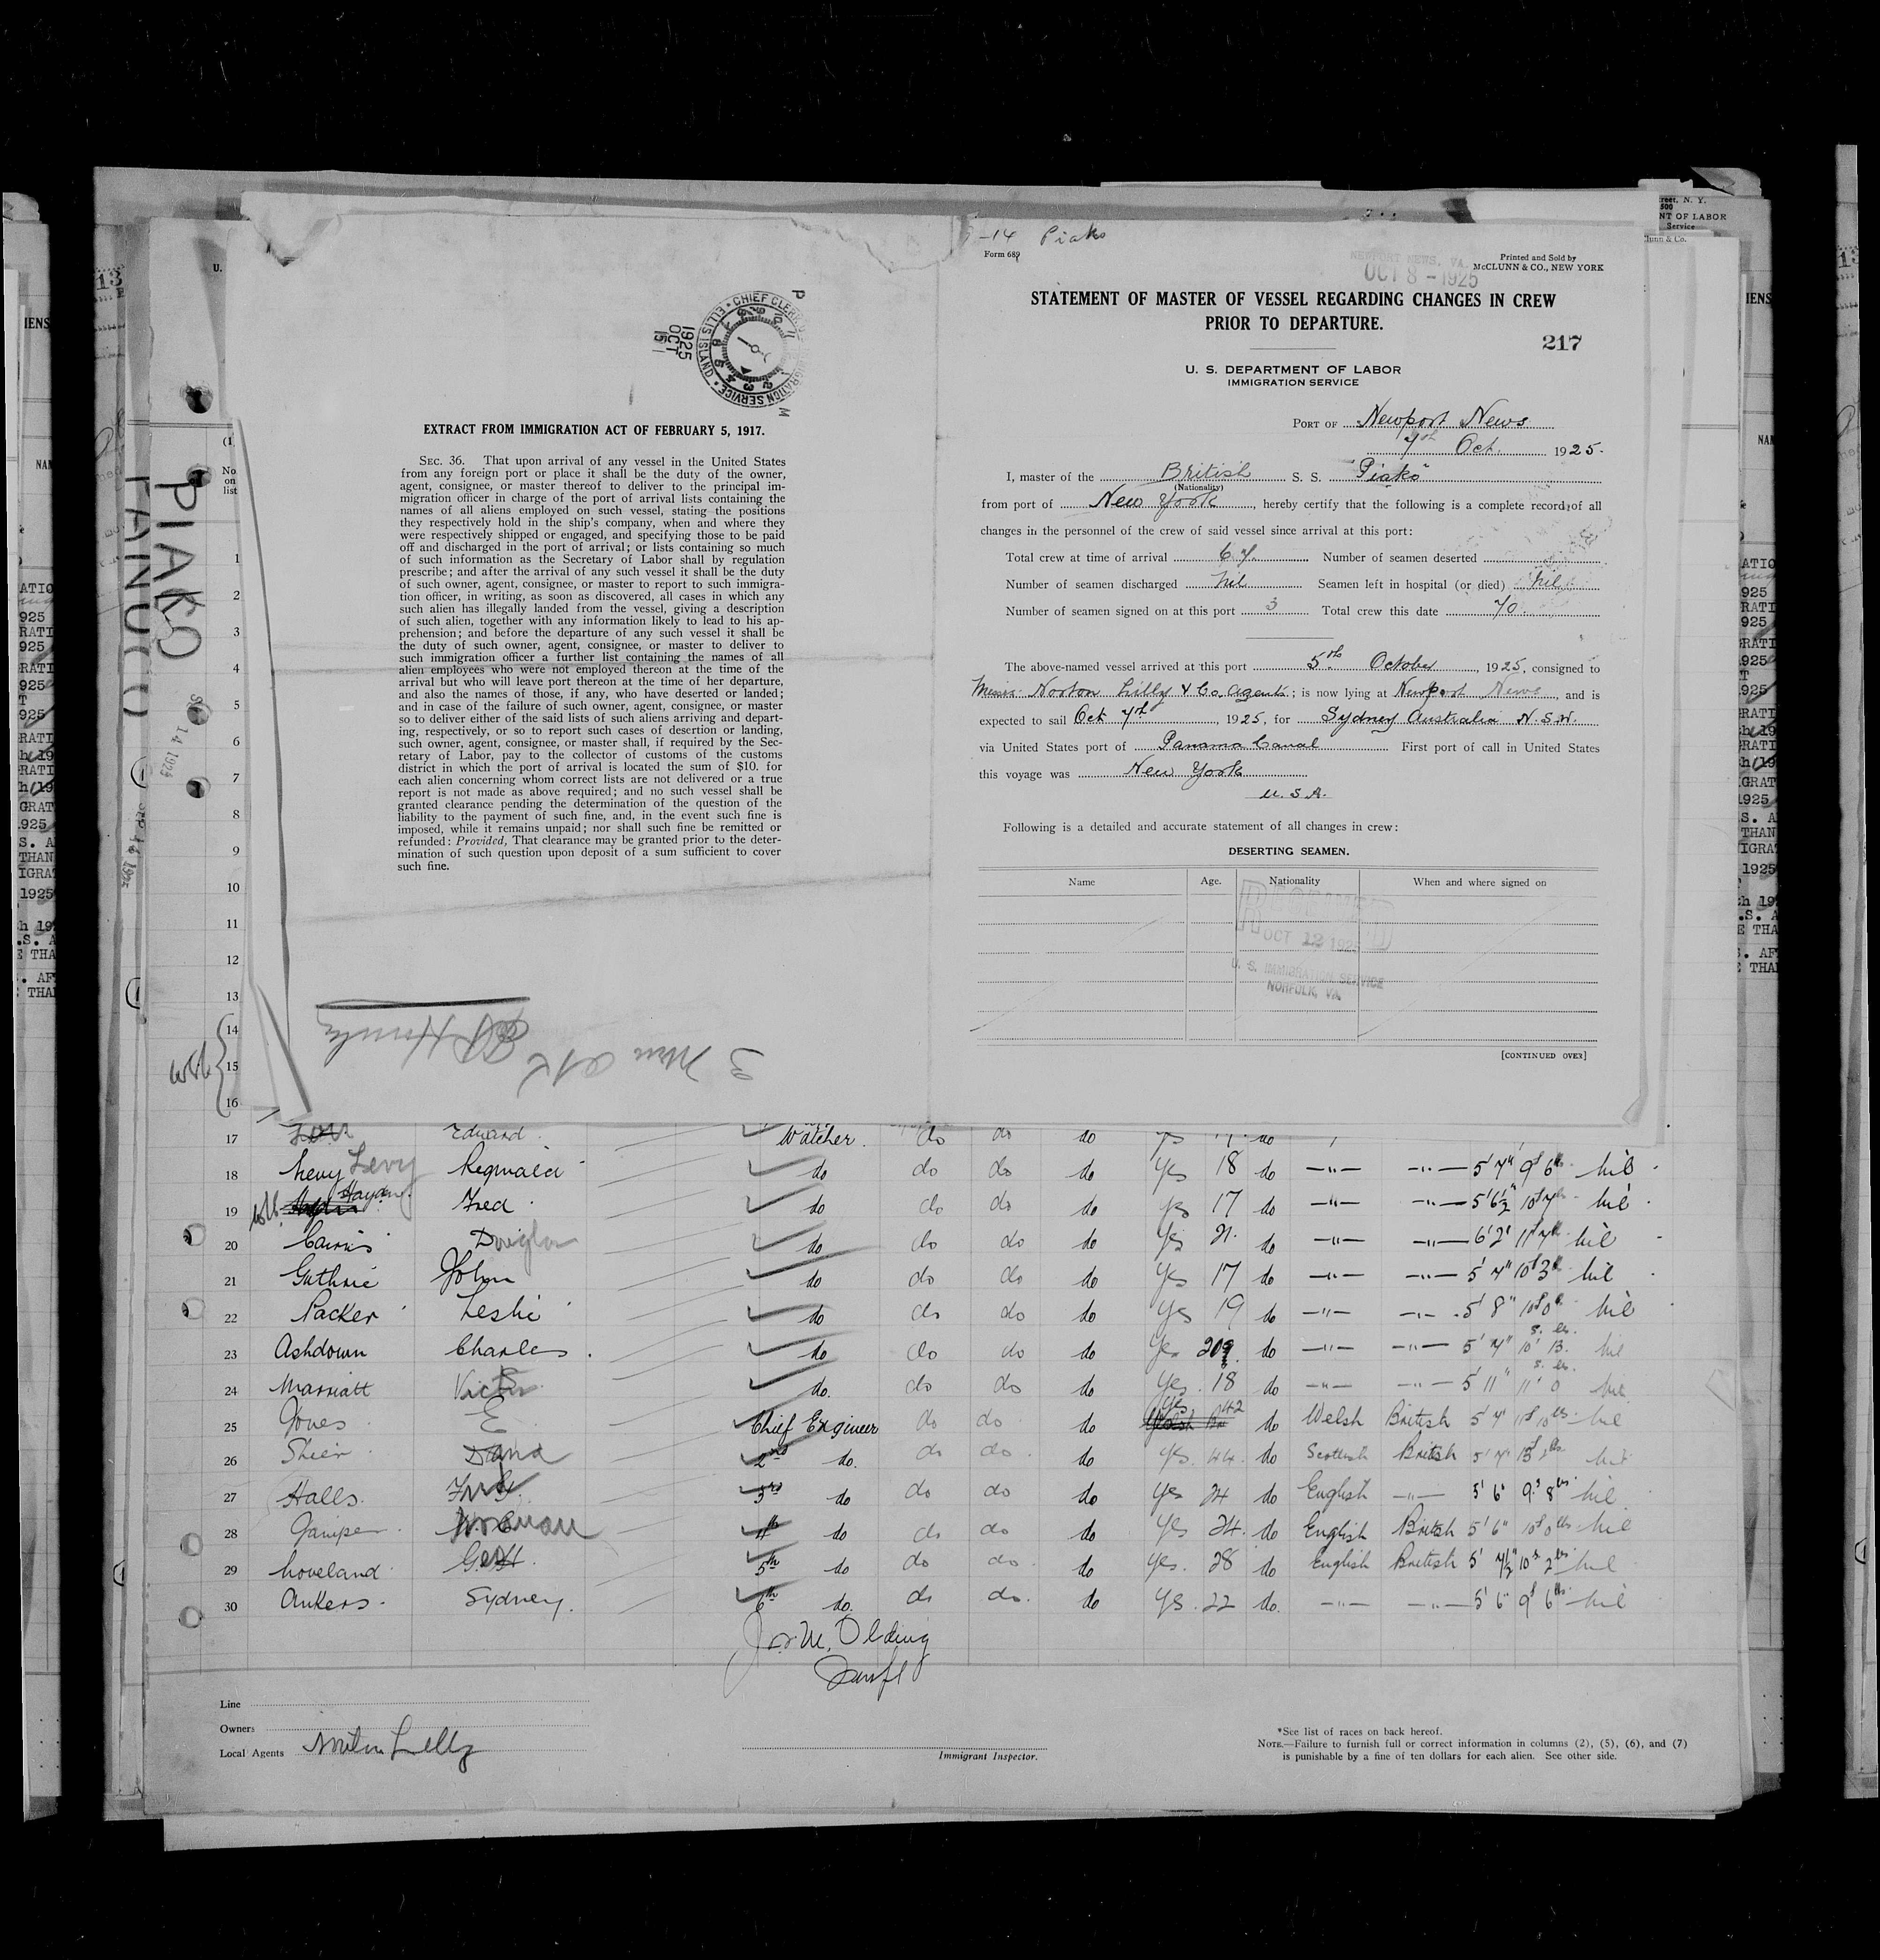 PIAKO
PANUCO
SEP 14 1925
EXTRACT FROM IMMIGRATION ACT OF FEBRUARY 5, 1917.
SEC. 36. That upon arrival of any vessel in the United States
from any foreign port or place it shall be the duty of the owner,
agent, consignee, or master thereof to deliver to the principal im-
migration officer in charge of the port of arrival lists containing the
names of all aliens employed on such vessel, stating the positions
they respectively hold in the ship's company, when and where they
were respectively shipped or engaged, and specifying those to be paid
off and discharged in the port of arrival; or lists containing so much
of such information as the Secretary of Labor shall by regulation
prescribe; and after the arrival of any such vessel it shall be the duty
of such owner, agent, consignee, or master to report to such immigra-
tion officer, in writing, as soon as discovered, all cases in which any
such alien has illegally landed from the vessel, giving a description
of such alien, together with any information likely to lead to his ap-
prehension; and before the departure of any such vessel it shall be
the duty of such owner, agent, consignee, or master to deliver to
such immigration officer a further list containing the names of all
alien employees who were not employed thereon at the time of the
arrival but who will leave port thereon at the time of her departure,
and also the names of those, if any, who have deserted or landed;
and in case of the failure of such owner, agent, consignee, or master
so to deliver either of the said lists of such aliens arriving and depart-
ing, respectively, or so to report such cases of desertion or landing,
such owner, agent, consignee, or master shall, if required by the Sec-
retary of Labor, pay to the collector of customs of the customs
district in which the port of arrival is located the sum of $10. for
each alien concerning whom correct lists are not delivered or a true
report is not made as above required; and no such vessel shall be
granted clearance pending the determination of the question of the
liability to the payment of such fine, and, in the event such fine is
imposed, while it remains unpaid; nor shall such fine be remitted or
refunded: Provided, That clearance may be granted prior to the deter-
mination of such question upon deposit of a sum sufficient to cover
such fine.
1925 OCT 15
CHIEF CLERK ELLIS ISLAND IMMIGRATION SERVICE
-14 Piako
Form 689
Printed and Sold by
McCLUNN & CO., NEW YORK
NEWPORT NEWS, VA.
OCT 8 - 1925
STATEMENT OF MASTER OF VESSEL REGARDING CHANGES IN CREW
PRIOR TO DEPARTURE.
217
U. S. DEPARTMENT OF LABOR
IMMIGRATION SERVICE
PORT OF Newport News
7th Oct. 1925.
I, master of the British S. S. "Piako"
(Nationality)
from port of New York, hereby certify that the following is a complete record of all
changes in the personnel of the crew of said vessel since arrival at this port:
Total crew at time of arrival 67. Number of seamen deserted
Number of seamen discharged Nil Seamen left in hospital (or died) Nil
Number of seamen signed on at this port 3 Total crew this date 70
The above-named vessel arrived at this port 5th October, 1925, consigned to
Messrs Norton Lilly & Co. Agents; is now lying at Newport News, and is
expected to sail Oct 7th, 1925, for Sydney Australia N.S.W.
via United States port of Panama Canal First port of call in United States
this voyage was New York
U.S.A.
Following is a detailed and accurate statement of all changes in crew:
DESERTING SEAMEN.
Name Age. Nationality When and where signed on
RECEIVED
OCT 12 1925
U. S. IMMIGRATION SERVICE
NORFOLK, VA.
[CONTINUED OVER]
1
2
3
4
5
6
7
8
9
10
11
12
13
14
15
16
17 Edward Watcher do do do
18 Levy Reginald do do do do Yes 18 do —"— —"— 5' 7" 9s 6lb nil
19 Hayden Fred do do do do yes 17 do —"— —"— 5' 6½ 10s 7lb nil
20 Cairns Douglas do do do do Yes 21. do —"— —"— 6' 2" 11s 7lb nil
21 Guthrie John do do do do Yes 17 do —"— —"— 5' 7" 10s 3lb nil
22 Packer Leslie do do do do Yes 19 do —"— —"— 5' 8" 10s 0lb nil
23 Ashdown Charles do do do do Yes 20 do —"— —"— 5' 7" 10 13. nil
24 Marriatt Victor do do do do Yes 18 do —"— —"— 5' 11" 11 0 nil
25 Jones E Chief Engineer do do do Yes 42 do Welsh British 5' 7" 11s 10lbs nil
26 Shier David 2nd do. do do do yes. 44. do Scottish British 5' 7" nil
27 Halls 3rd do do do do Yes 24 do English —"— 5' 6" 9s 8lbs nil
28 Norman 4th do do do do Yes 24. do English British 5' 6" 10s 0lbs nil
29 Loveland 5th do do do do yes. 28 do English British 5' 7½" 10s 2lbs nil
30 Ankers Sydney. 6th do. do do. do Yes. 22 do. —"— —"— 5' 6" 9s 6lbs nil
Jos. M. Olding
Line
Owners
Local Agents Norton Lilly
Immigrant Inspector.
*See list of races on back hereof.
NOTE.—Failure to furnish full or correct information in columns (2), (5), (6), and (7)
is punishable by a fine of ten dollars for each alien. See other side.